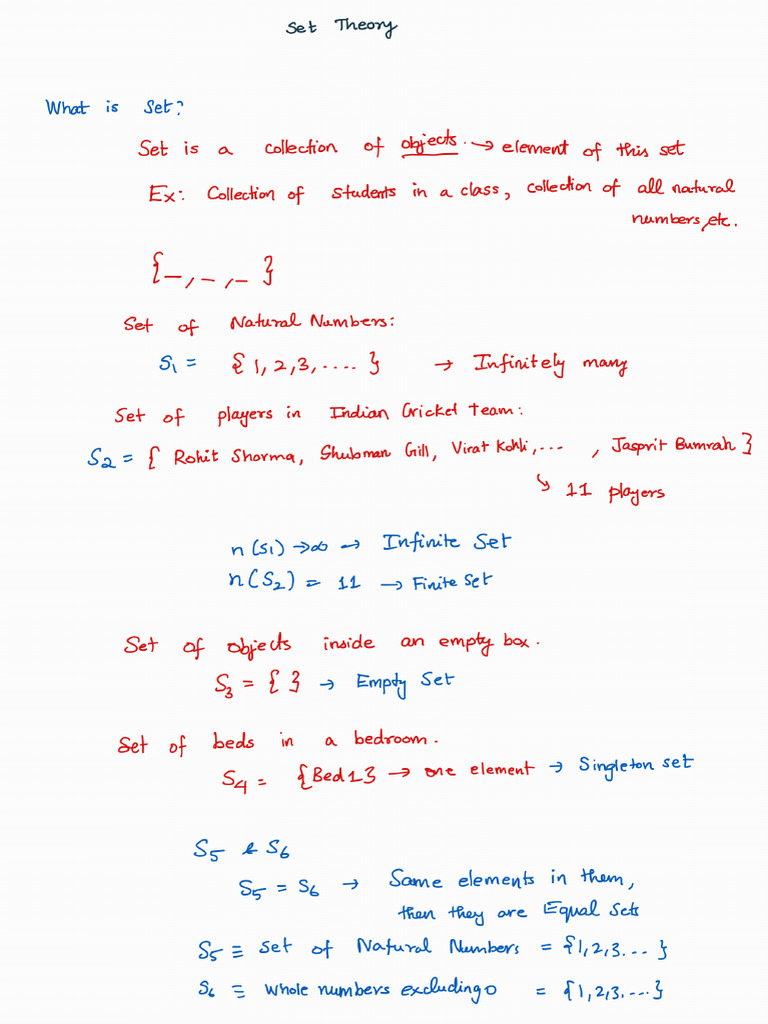 Set Theory
What is Set?
Set is a collection of objects. → element of this set
Ex: Collection of students in a class, collection of all natural
numbers, etc.
{ _ , _ , _ }
Set of Natural Numbers:
S₁ = { 1, 2, 3, .... } → Infinitely many
Set of players in Indian Cricket Team:
S₂ = { Rohit Sharma, Shubman Gill, Virat Kohli, ... , Jasprit Bumrah }
↳ 11 players
n(S₁) → ∞ → Infinite Set
n(S₂) = 11 → Finite Set
Set of objects inside an empty box.
S₃ = { } → Empty Set
Set of beds in a bedroom.
S₄ = {Bed 1} → one element → Singleton set
S₅ & S₆
S₅ = S₆ → Same elements in them,
then they are Equal Sets
S₅ ≡ Set of Natural Numbers = {1, 2, 3....}
S₆ ≡ Whole numbers excluding 0 = {1, 2, 3, ....}